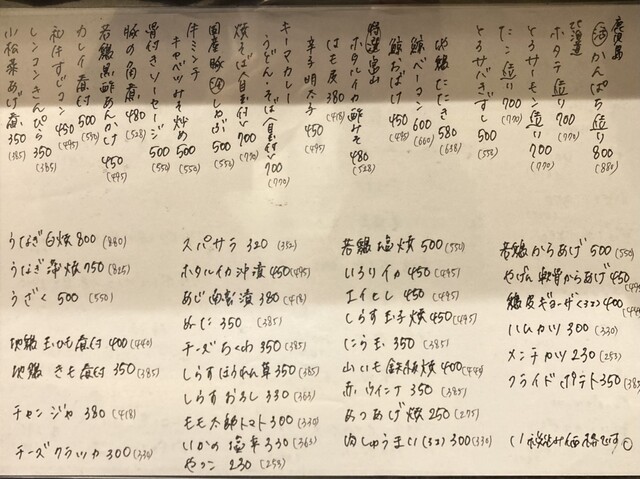 鹿児島
かんぱち造り 800 (880)
北海道
ホタテ造り 700 (770)
とろサーモン造り 700 (770)
たこ造り 700 (770)
とろサバきずし 500 (550)
地鶏たたき 580 (638)
鯨ベーコン 600 (660)
鯨おばけ 450 (495)
特選 富山
ホタルイカ酢みそ 480 (528)
はも皮 380 (418)
辛子明太子 450 (495)
キーマカレー
うどん・そば(目玉付) 700 (770)
焼そば(目玉付) 700 (770)
国産豚しゃぶ 500 (550)
牛ミンチ
キャベツみそ炒め 500 (550)
骨付きソーセージ 500 (550)
豚の角煮 480 (528)
若鶏黒酢あんかけ 450 (495)
カレイ煮付 500 (550)
和牛すじコン 450 (495)
レンコンきんぴら 350 (385)
小松菜あげ煮 350 (385)
うなぎ白焼 800 (880)
うなぎ蒲焼 750 (825)
うざく 500 (550)
地鶏玉ひも煮付 400 (440)
地鶏きも煮付 350 (385)
チャンジャ 380 (418)
チーズクラッカ 300 (330)
スパサラ 320 (352)
ホタルイカ沖漬 450 (495)
あじ南蛮漬 380 (418)
ぬーだ 350 (385)
チーズちくわ 350 (385)
しらすほうれん草 350 (385)
しらすおろし 330 (363)
もも太郎トマト 300 (330)
いかの塩辛 330 (363)
やっこ 230 (253)
若鶏塩焼 500 (550)
いろりイカ 450 (495)
エイヒレ 450 (495)
しらす玉子焼 450 (495)
にら玉 350 (385)
山いも鉄板焼 400 (440)
赤ウインナ 350 (385)
あつあげ焼 250 (275)
肉しゅうまい(3コ) 300 (330)
若鶏からあげ 500 (550)
やげん軟骨からあげ 450 (495)
鶏皮ギョーザ(3コ) 400 (440)
ハムカツ 300 (330)
メンチカツ 230 (253)
フライドポテト 350 (385)
( )税込み価格です。